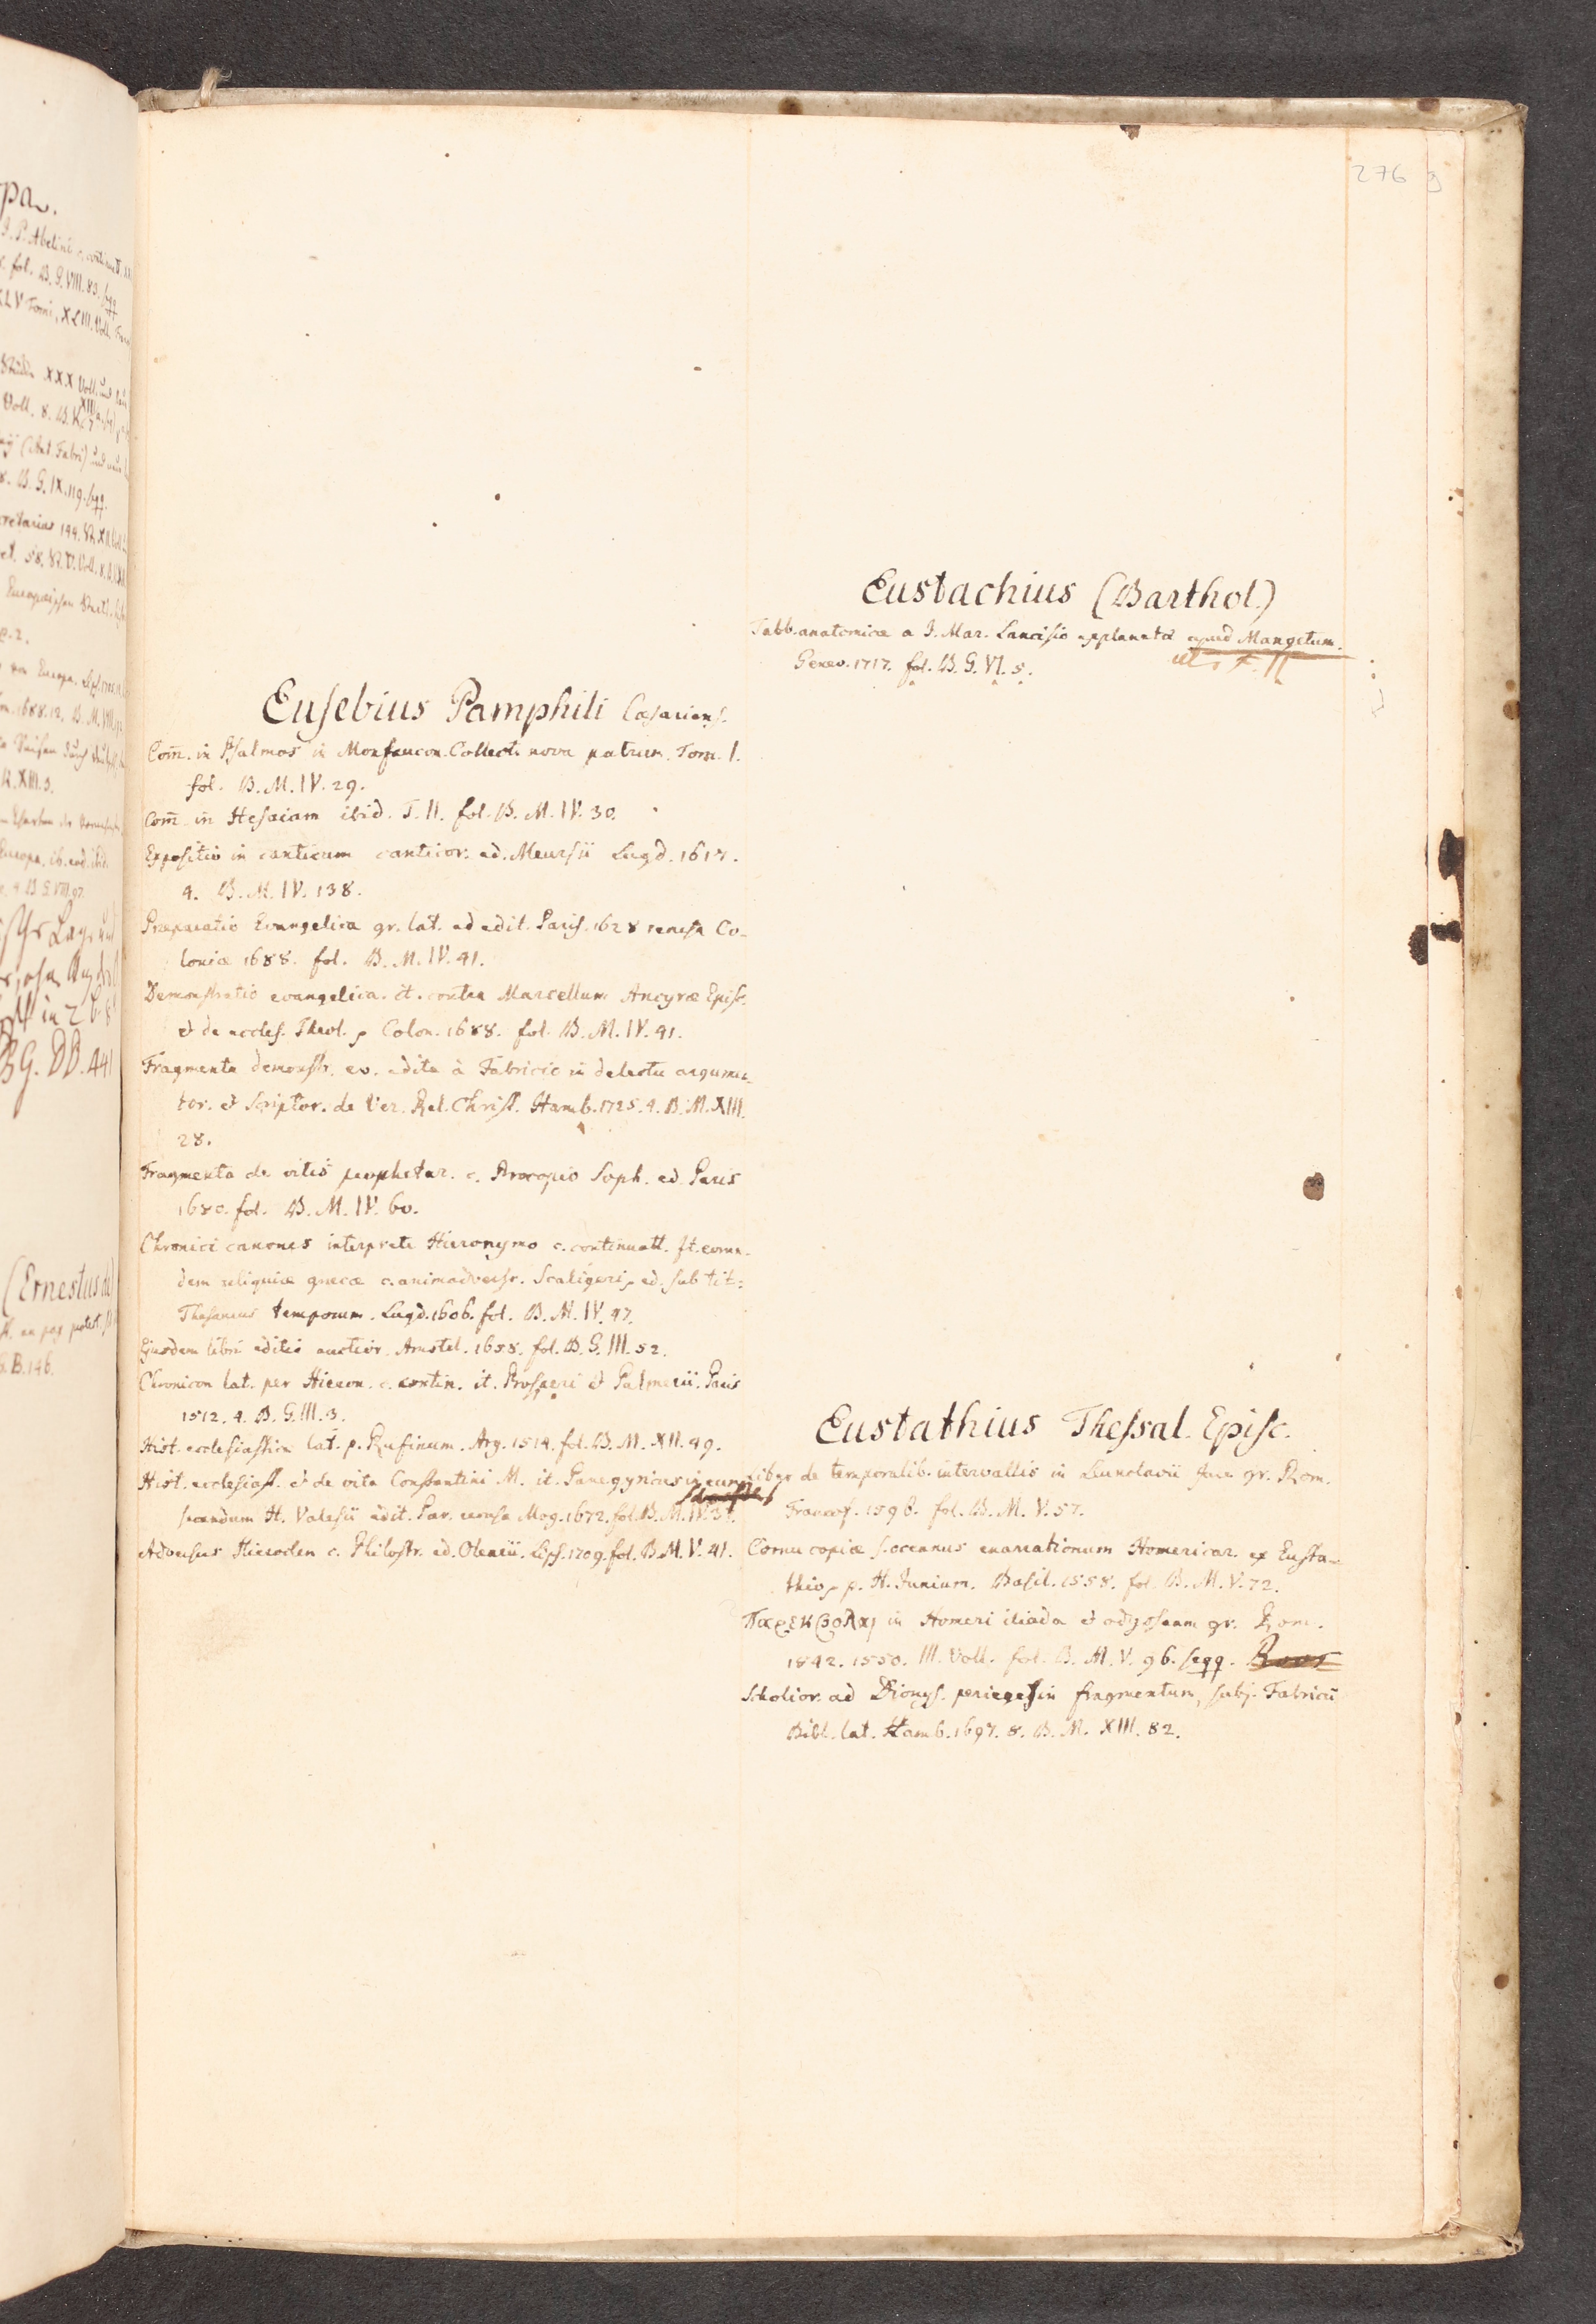 276
Eusebius Pamphili Cæsariens.
Com̄. in Psalmos in Monfaucon. Collect. nova patrum. Tom. I.
fol. B. M. IV. 29.
Com̄. in Hesaiam ibid. T. II. fol. B. M. IV. 30.
Expositio in canticum canticor. ed. Meursii Lugd. 1617.
4. B. M. IV. 138.
Præparatio Evangelica gr. lat. ad edit. Paris. 1628 recusa Co-
loniæ 1688. fol. B. M. IV. 41.
Demonstratio evangelica. it. contra Marcellum Ancyræ Episc.
et de eccles. Theol. Colon. 1688. fol. B. M. IV. 41.
Fragmenta demonstr. ev. edita à Fabricio in delectu argumen-
tor. et Scriptor. de Ver. Rel. Christ. Hamb. 1725. 4. B. M. XIII.
28.
Fragmenta de vitis prophetar. c. Procopio Soph. ed. Paris
1680. fol. B. M. IV. 60.
Chronici canones interprete Hieronymo c. continuatt. it. eorun-
dem reliquiæ græcæ c. animadverss. Scaligeri, ed. sub tit:
Thesaurus temporum. Lugd. 1606. fol. B. M. IV. 47.
Ejusdem libri editio auctior. Amstel. 1658. fol. B. G. III. 52.
Chronicon lat. per Hieron. c. contin. it. Prosperi et Palmerii. Paris
1512. 4. B. G. III. 3.
Hist. ecclesiastica lat. p. Rufinum. Arg. 1514. fol. B. M. XII. 49.
Hist. ecclesiast. et de vita Constantini M. it. Panegyricus in eum
secundum H. Valesii edit. Par. recusa Mog. 1672. fol. B. M. IV. 37.
Adversus Hieroclen c. Philostr. ed. Olearii. Lips. 1709. fol. B. M. V. 41.
Eustachius (Barthol.)
Tabb. anatomicæ a J. Mar. Lancisio explanatæ apud Mangetum.
Genev. 1717. fol. B. G. VI. 5.
Eustathius Thessal. Episc.
Liber de temporalib. intervallis in Leunclavii Jure gr. Rom.
Francof. 1596. fol. B. M. V. 57.
Cornu copiæ s. oceanus enarrationum Homericar. ex Eusta-
thio, p. H. Junium. Basil. 1558. fol. B. M. V. 72.
Παρεκβολαι in Homeri iliada et odysseam gr. Rom.
1542. 1550. III. Voll. fol. B. M. V. 96. seqq.
Scholior. ad Dionys. periegesin fragmentum, subj. Fabricii
Bibl. lat. Hamb. 1697. 8. B. M. XIII. 82.